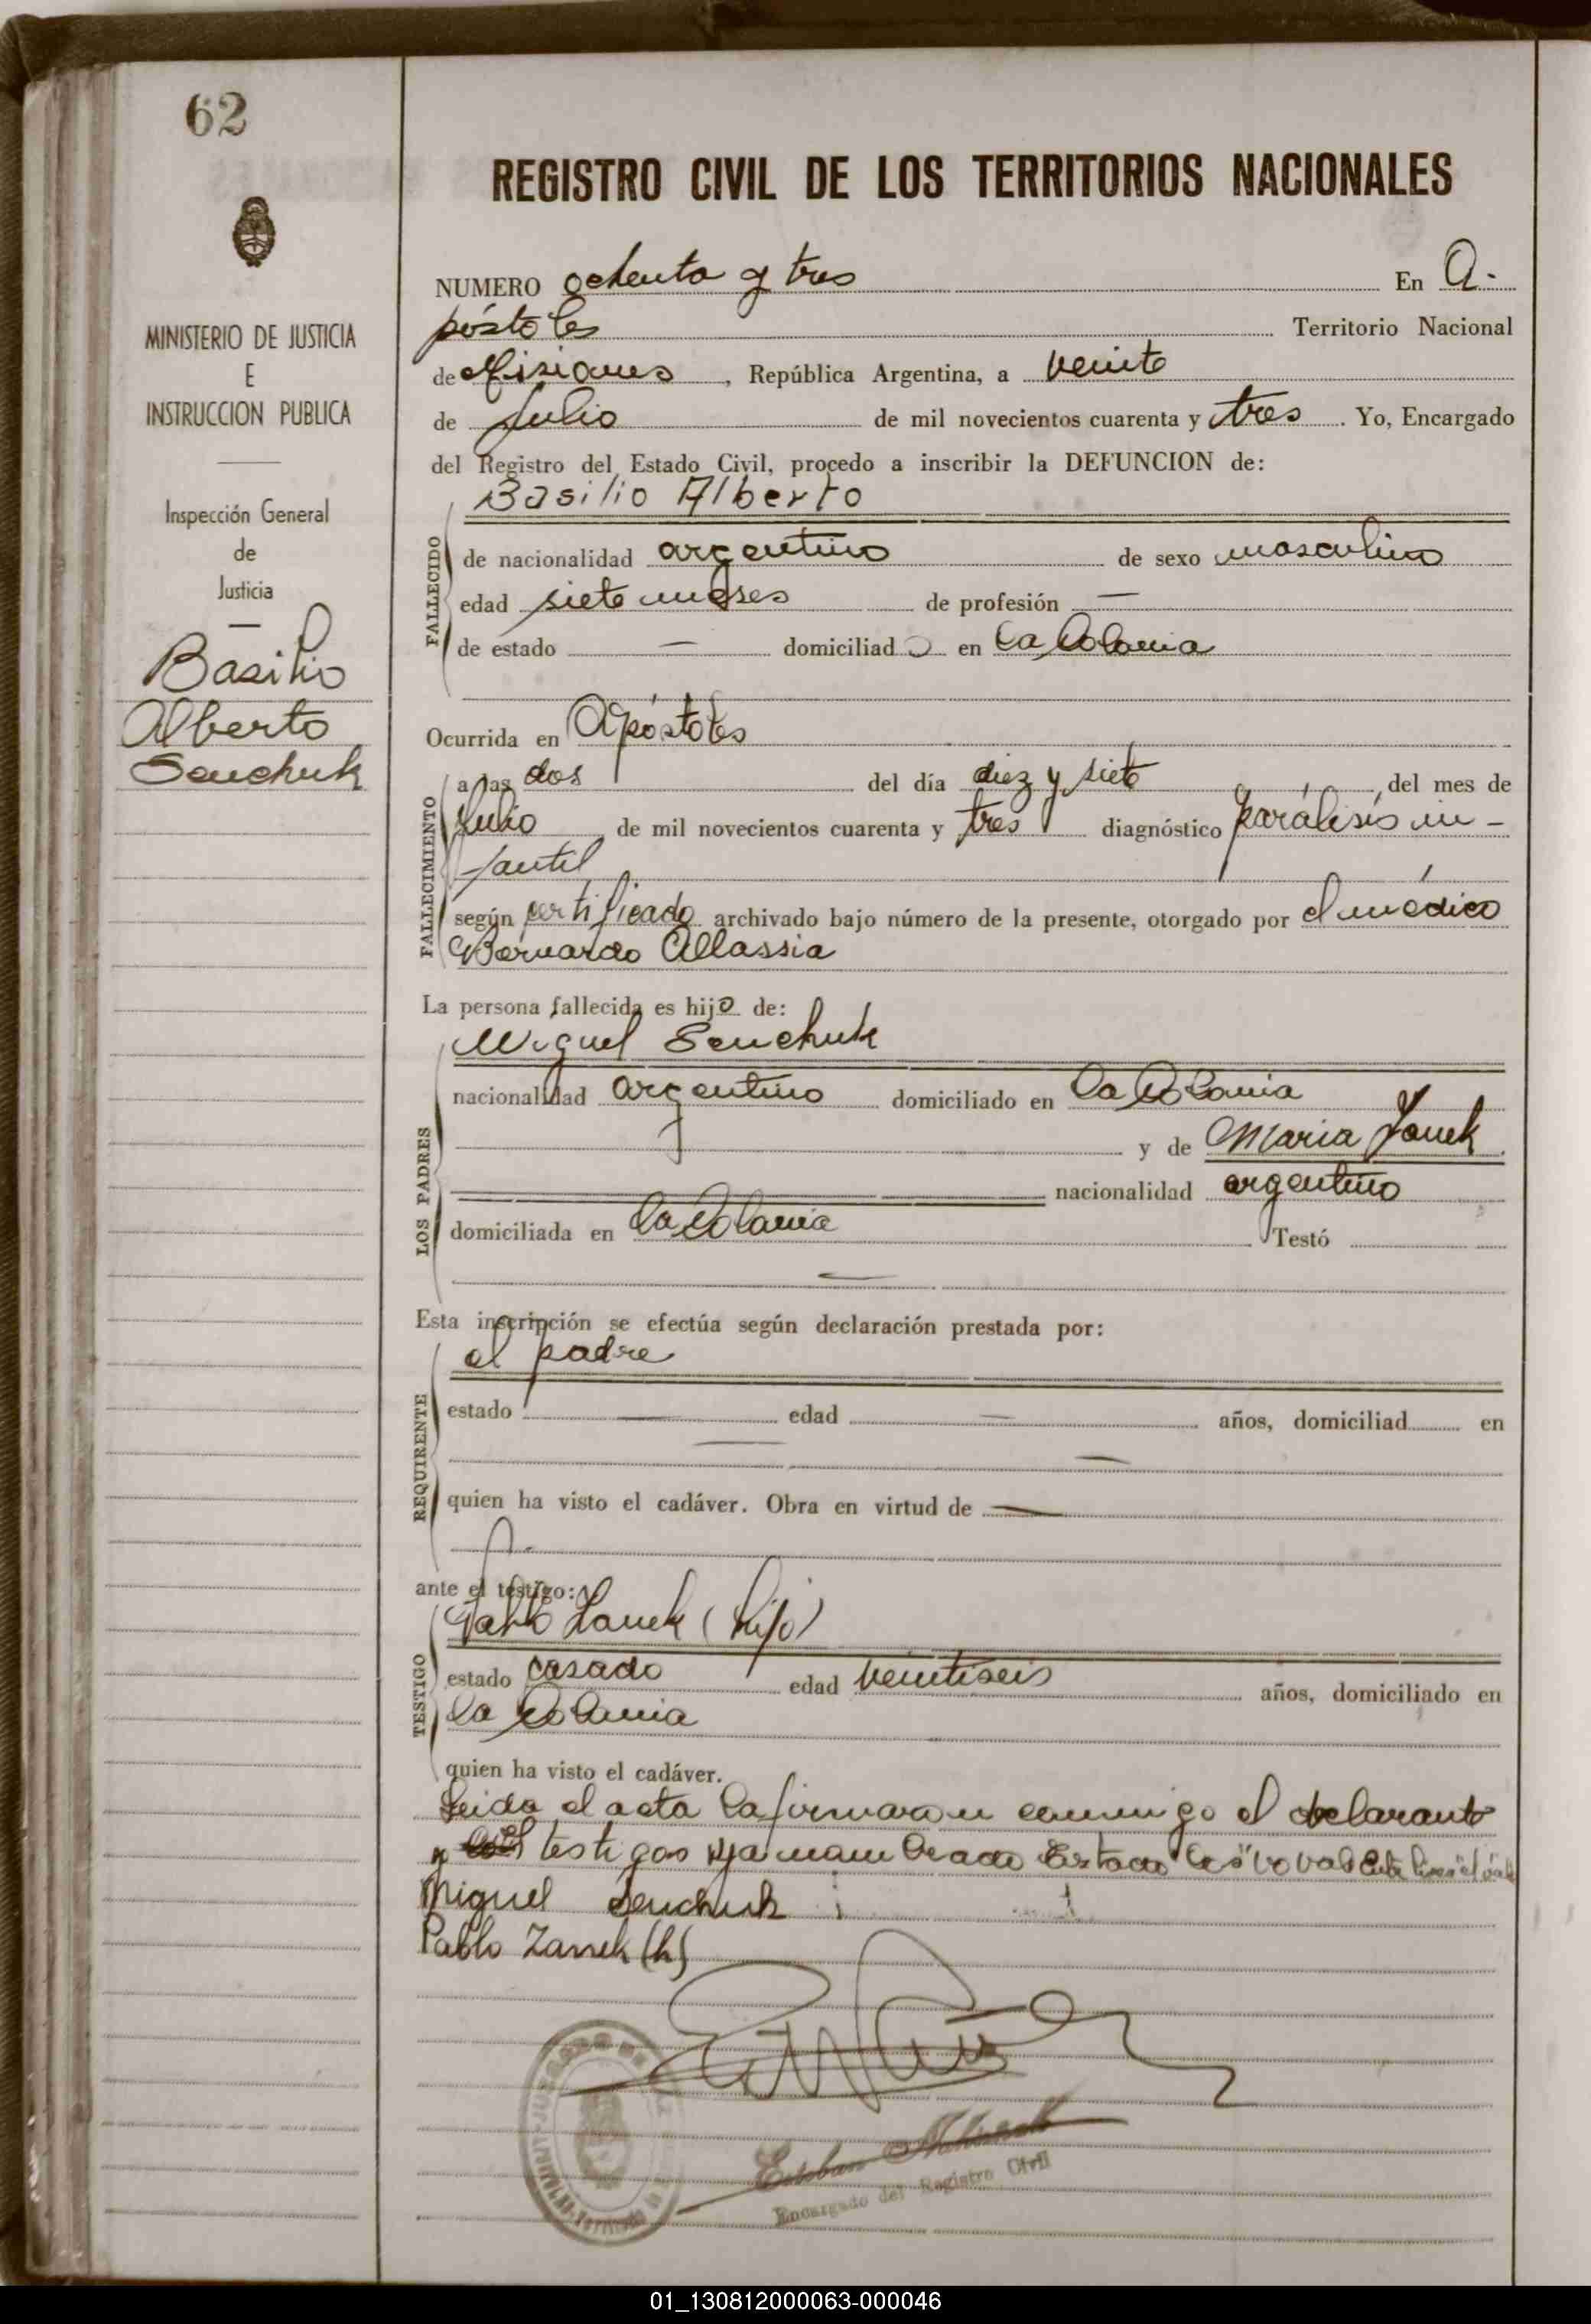 62
MINISTERIO DE JUSTICIA
E
INSTRUCCION PUBLICA
Inspección General
de
Justicia
Basilio
Alberto
Senchuk
REGISTRO CIVIL DE LOS TERRITORIOS NACIONALES
NUMERO ochenta y tres En A-
póstoles Territorio Nacional
de Misiones, República Argentina, a veinte
de Julio de mil novecientos cuarenta y tres. Yo, Encargado
del Registro del Estado Civil, procedo a inscribir la DEFUNCION de:
Basilio Alberto
FALLECIDO
de nacionalidad argentino de sexo masculino
edad siete meses de profesión —
de estado — domiciliado en la Colonia
Ocurrida en Apóstoles
FALLECIMIENTO
a las dos del día diez y siete, del mes de
Julio, de mil novecientos cuarenta y tres diagnóstico parálisis in-
fantil
según certificado archivado bajo número de la presente, otorgado por el médico
Bernardo Allassia
La persona fallecida es hijo de:
LOS PADRES
Miguel Senchuk
nacionalidad argentino domiciliado en la Colonia
y de Maria Zanek
nacionalidad argentino
domiciliada en la Colonia Testó
—
Esta inscripción se efectúa según declaración prestada por:
REQUIRENTE
el padre
estado — edad — años, domiciliad en
— —
quien ha visto el cadáver. Obra en virtud de —
ante el testigo:
TESTIGO
Pablo Zanek (hijo)
estado casado edad veintiseis años, domiciliado en
la Colonia
quien ha visto el cadáver.
Leida el acta la firmaron conmigo el declarante
y testigos ya
Miguel Senchuk
Pablo Zanek (h)
Esteban
Encargado del Registro Civil
01_130812000063-000046